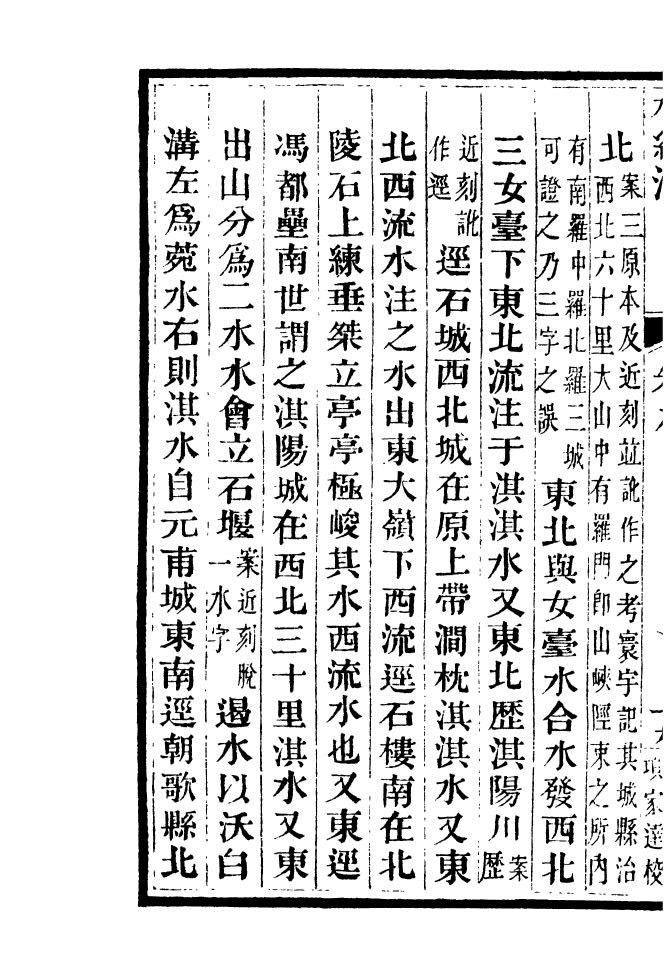 北案三原本及近刻竝訛作之考寰宇記其城縣治西北六十里大山中有羅門卽山峽陘東之所內
有南羅中羅北羅三城可證之乃三字之誤東北與女臺水合水發西北
三女臺下東北流注于淇淇水又東北歷淇陽川案歷
近刻訛作逕逕石城西北城在原上帶澗枕淇淇水又東
北西流水注之水出東大嶺下西流逕石樓南在北
陵石上練垂桀立亭亭極峻其水西流水也又東逕
馮都壘南世謂之淇陽城在西北三十里淇水又東
出山分爲二水水會立石堰案近刻脫一水字遏水以沃白
溝左爲菀水右則淇水自元甫城東南逕朝歌縣北